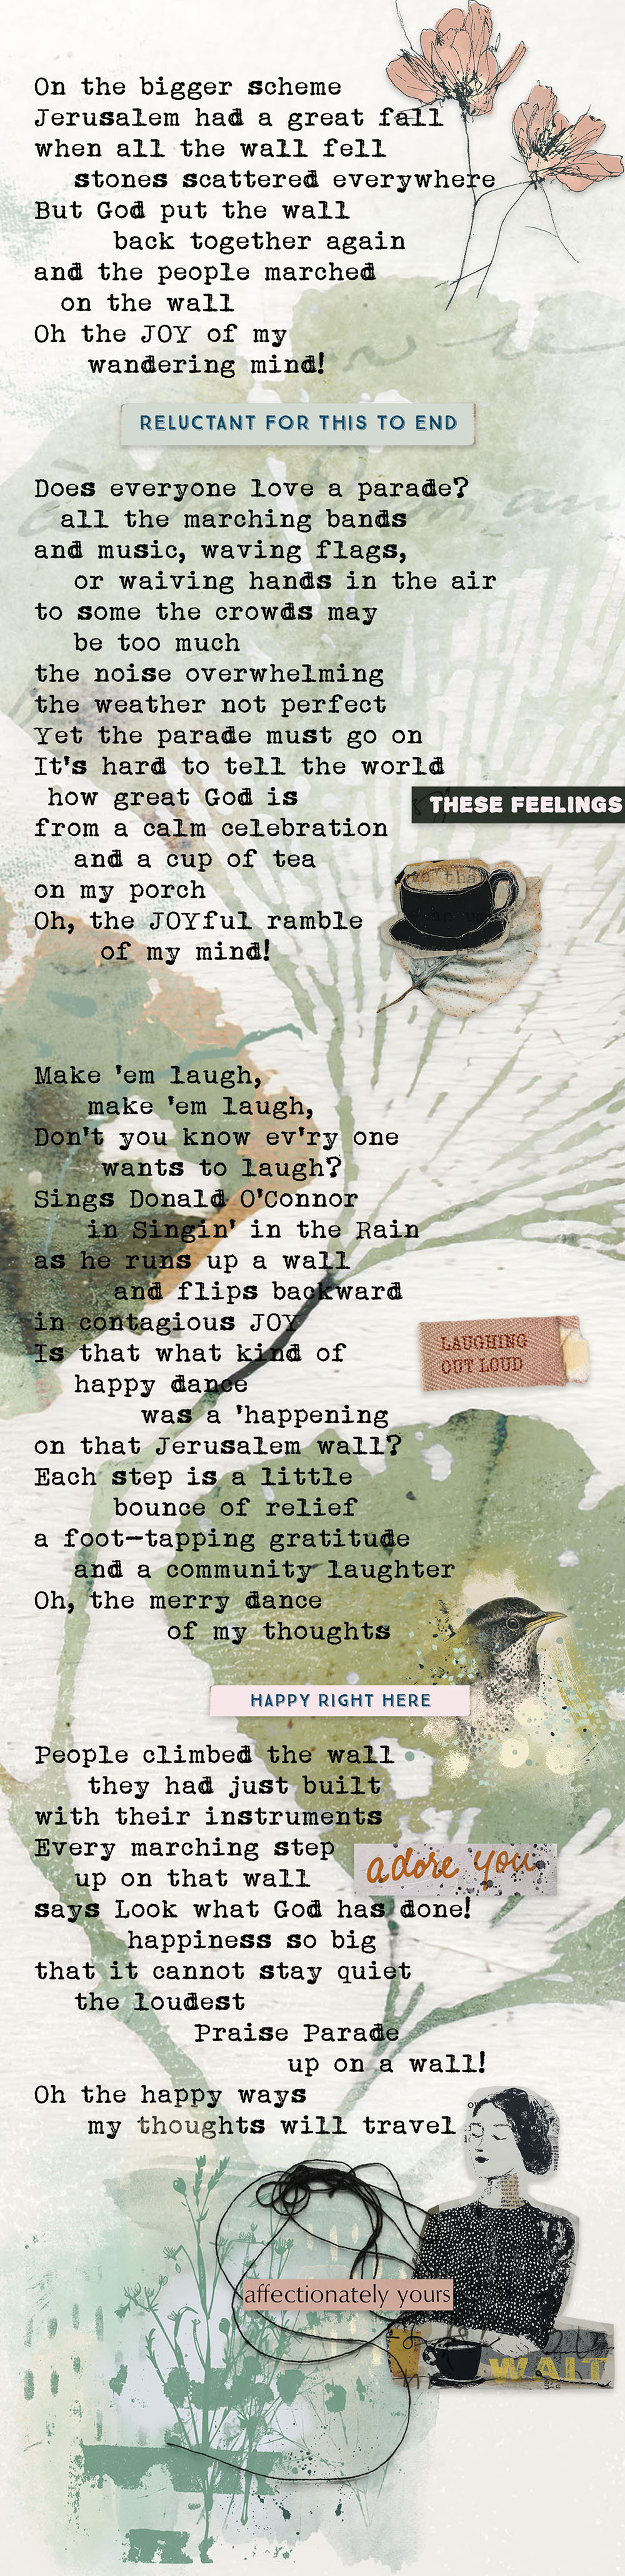 On the bigger scheme
Jerusalem had a great fall
when all the wall fell
stones scattered everywhere
But God put the wall
back together again
and the people marched
on the wall
Oh the JOY of my
wandering mind!
RELUCTANT FOR THIS TO END
Does everyone love a parade?
all the marching bands
and music, waving flags,
or waiving hands in the air
to some the crowds may
be too much
the noise overwhelming
the weather not perfect
Yet the parade must go on
It's hard to tell the world
how great God is
THESE FEELINGS
from a calm celebration
and a cup of tea
on my porch
Oh, the JOYful ramble
of my mind!
Make 'em laugh,
make 'em laugh,
Don't you know ev'ry one
wants to laugh?
Sings Donald O'Connor
in Singin' in the Rain
as he runs up a wall
and flips backward
in contagious JOY
Is that what kind of
happy dance
was a 'happening
on that Jerusalem wall?
LAUGHING
OUT LOUD
Each step is a little
bounce of relief
a foot-tapping gratitude
and a community laughter
Oh, the merry dance
of my thoughts
HAPPY RIGHT HERE
People climbed the wall
they had just built
with their instruments
Every marching step
up on that wall
adore you
says Look what God has done!
happiness so big
that it cannot stay quiet
the loudest
Praise Parade
up on a wall!
Oh the happy ways
my thoughts will travel
affectionately yours
WAIT